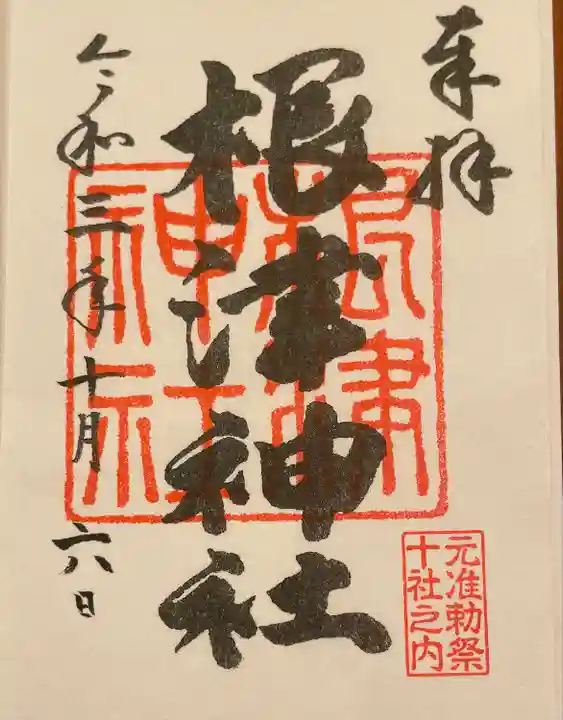 奉拝
根津神社
根津神社
元准勅祭
十社之内
令和三年十月六日